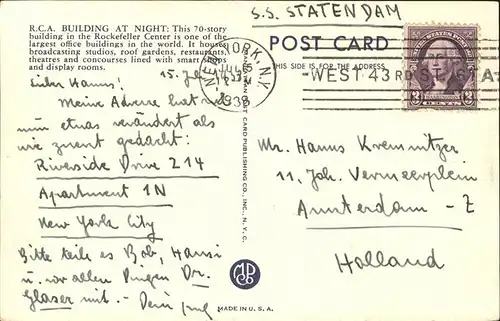 S.S. STATENDAM
R.C.A. BUILDING AT NIGHT: This 70-story
building in the Rockefeller Center is one of the
largest office buildings in the world. It houses
broadcasting studios, roof gardens, restaurants,
theatres and concourses lined with smart shops
and display rooms.
POST CARD
THIS SIDE IS FOR THE ADDRESS
NEW YORK, N.Y.
JUL 15
1938
WEST 43RD ST. STA
3 CENTS 3
15. Jul
Lieber Hanns!
Meine Adresse hat sich
nun etwas verändert als
wie zuerst gedacht:
Riverside Drive 214
Apartment 1N
New York City
Bitte teile es Bob, Hansi
u. vor allen Dingen Dr.
Glaser mit. - Dein
Mr. Hanns Kremnitzer
11, Joh. Vermeerplein
Amsterdam - Z
Holland
MANHATTAN POST CARD PUBLISHING CO., INC., N. Y. C.
MADE IN U.S.A.